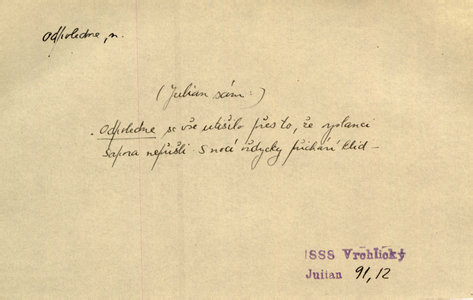 Odpoledne, n.
(Julian sám:)
Odpoledne se vše utišilo přes to, že vyslanci
Šapora nepřišli. S nocí vždycky přichází klid –
SSS Vrchlický
Julian 91,12